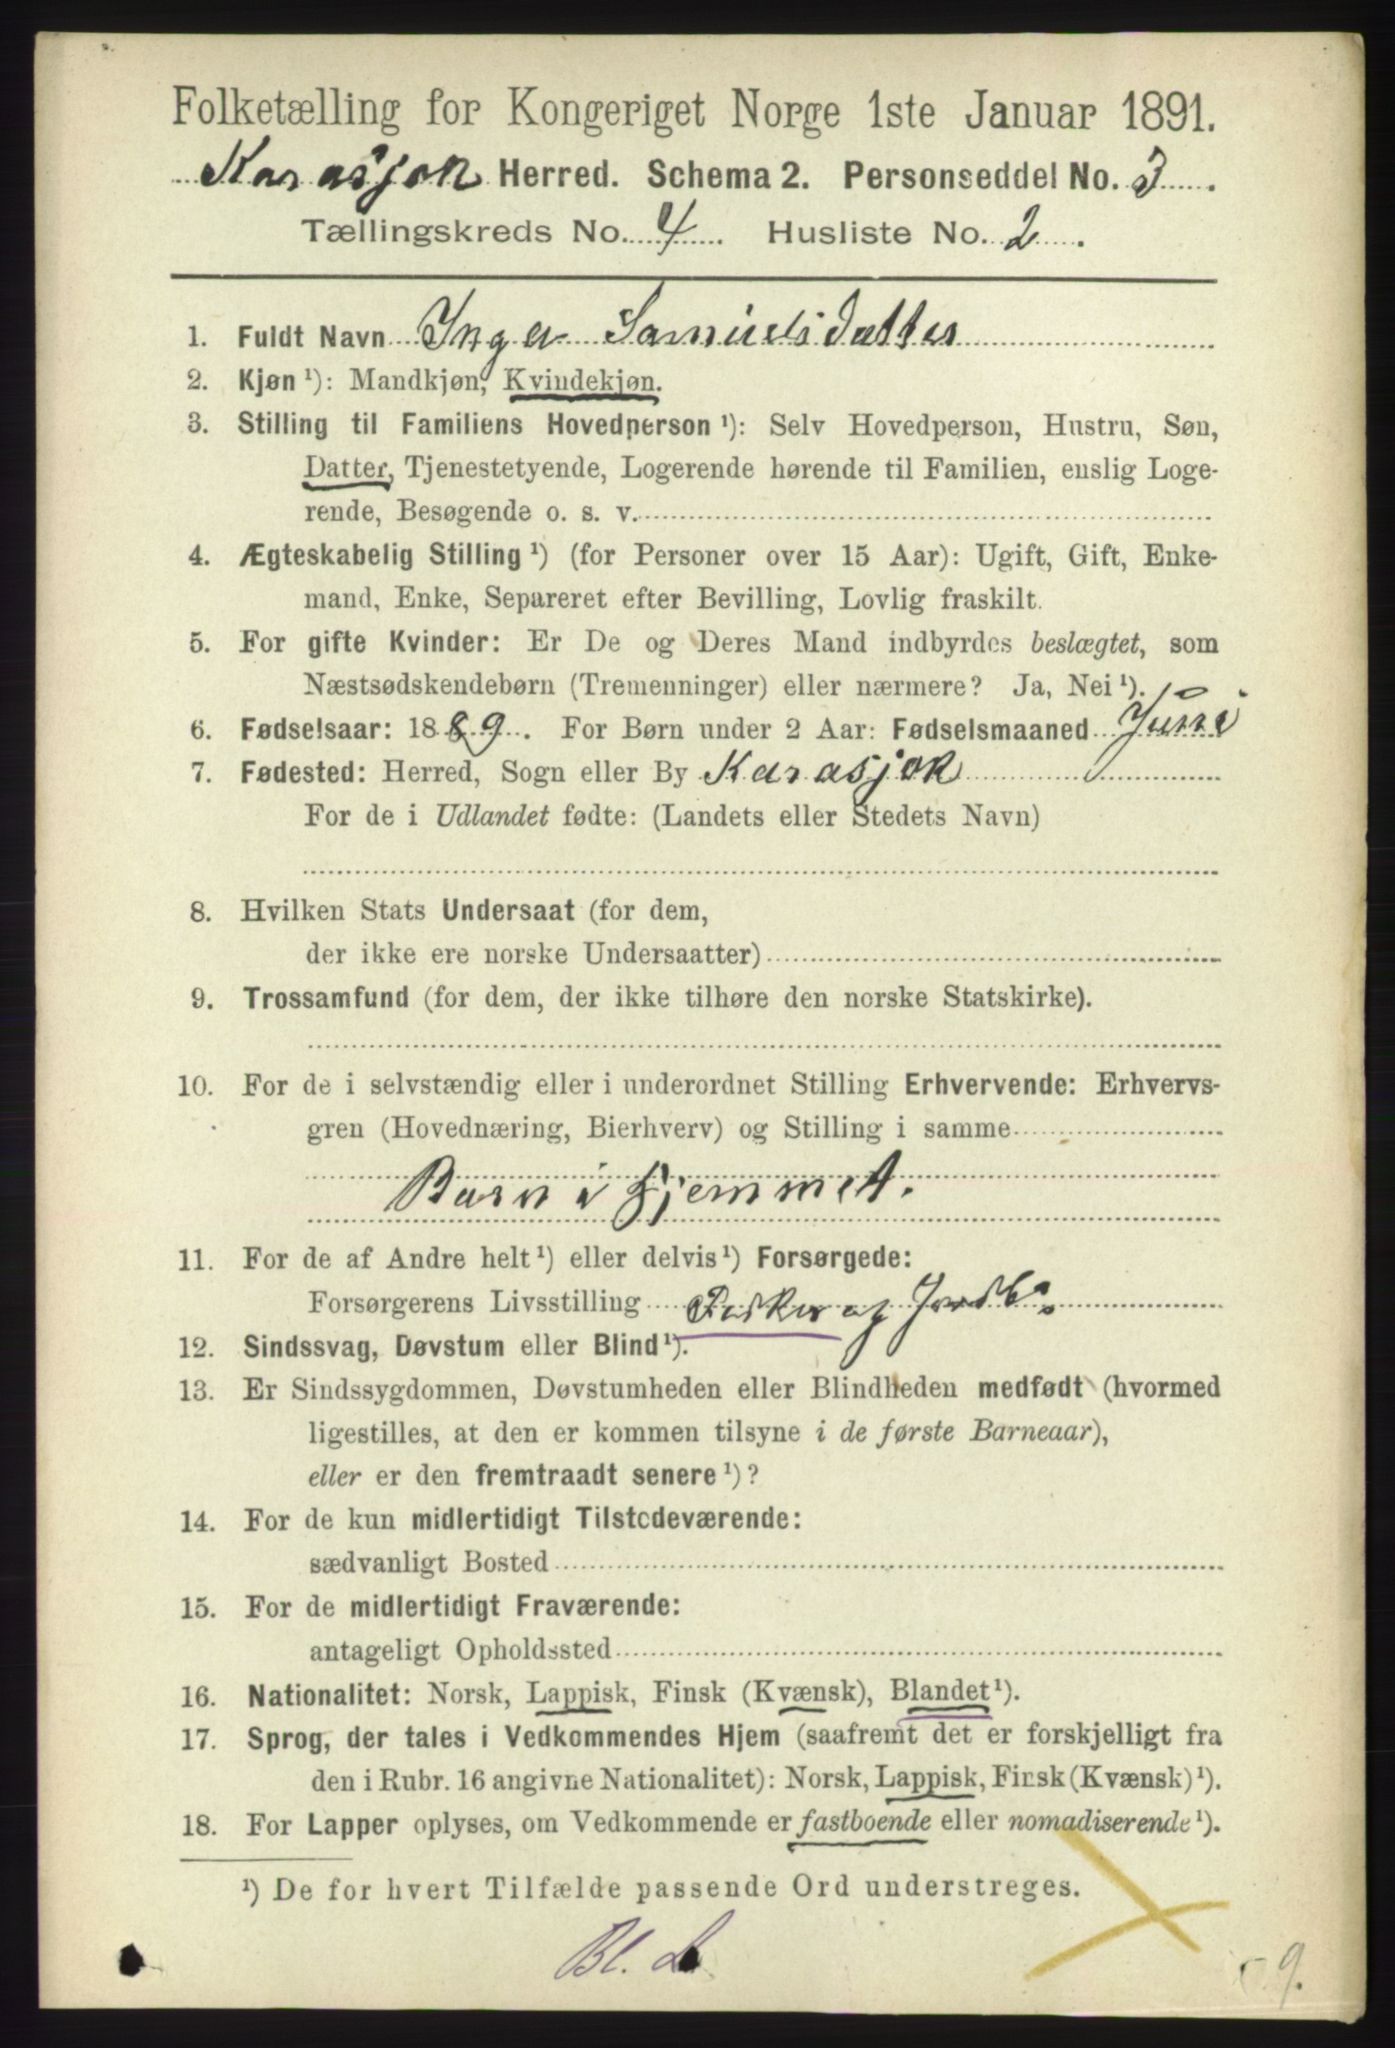 Folketælling for Kongeriget Norge 1ste Januar 1891.
Karasjok Herred. Schema 2. Personseddel No. 3.
Tællingskreds No. 4. Husliste No. 2.
1. Fuldt Navn Inger Samuelsdatter
2. Kjøn ¹): Mandkjøn, Kvindekjøn.
3. Stilling til Familiens Hovedperson ¹): Selv Hovedperson, Hustru, Søn,
Datter, Tjenestetyende, Logerende hørende til Familien, enslig Loge-
rende, Besøgende o. s. v.
4. Ægteskabelig Stilling ¹) (for Personer over 15 Aar): Ugift, Gift, Enke-
mand, Enke, Separeret efter Bevilling, Lovlig fraskilt.
5. For gifte Kvinder: Er De og Deres Mand indbyrdes beslægtet, som
Næstsødskendebørn (Tremenninger) eller nærmere? Ja, Nei ¹).
6. Fødselsaar: 1889. For Børn under 2 Aar: Fødselsmaaned Juni
7. Fødested: Herred, Sogn eller By Karasjok
For de i Udlandet fødte: (Landets eller Stedets Navn)
8. Hvilken Stats Undersaat (for dem,
der ikke ere norske Undersaatter)
9. Trossamfund (for dem, der ikke tilhøre den norske Statskirke).
10. For de i selvstændig eller i underordnet Stilling Erhvervende: Erhvervs-
gren (Hovednæring, Bierhverv) og Stilling i samme
Barn i hjemmet.
11. For de af Andre helt ¹) eller delvis ¹) Forsørgede:
Forsørgerens Livsstilling Fisker og Jordb.
12. Sindssvag, Døvstum eller Blind ¹).
13. Er Sindssygdommen, Døvstumheden eller Blindheden medfødt (hvormed
ligestilles, at den er kommen tilsyne i de første Barneaar),
eller er den fremtraadt senere ¹)?
14. For de kun midlertidigt Tilstedeværende:
sædvanligt Bosted
15. For de midlertidigt Fraværende:
antageligt Opholdssted
16. Nationalitet: Norsk, Lappisk, Finsk (Kvænsk), Blandet ¹).
17. Sprog, der tales i Vedkommendes Hjem (saafremt det er forskjelligt fra
den i Rubr. 16 angivne Nationalitet): Norsk, Lappisk, Finsk (Kvænsk) ¹).
18. For Lapper oplyses, om Vedkommende er fastboende eller nomadiserende ¹).
¹) De for hvert Tilfælde passende Ord understreges.
Bl. L
9.